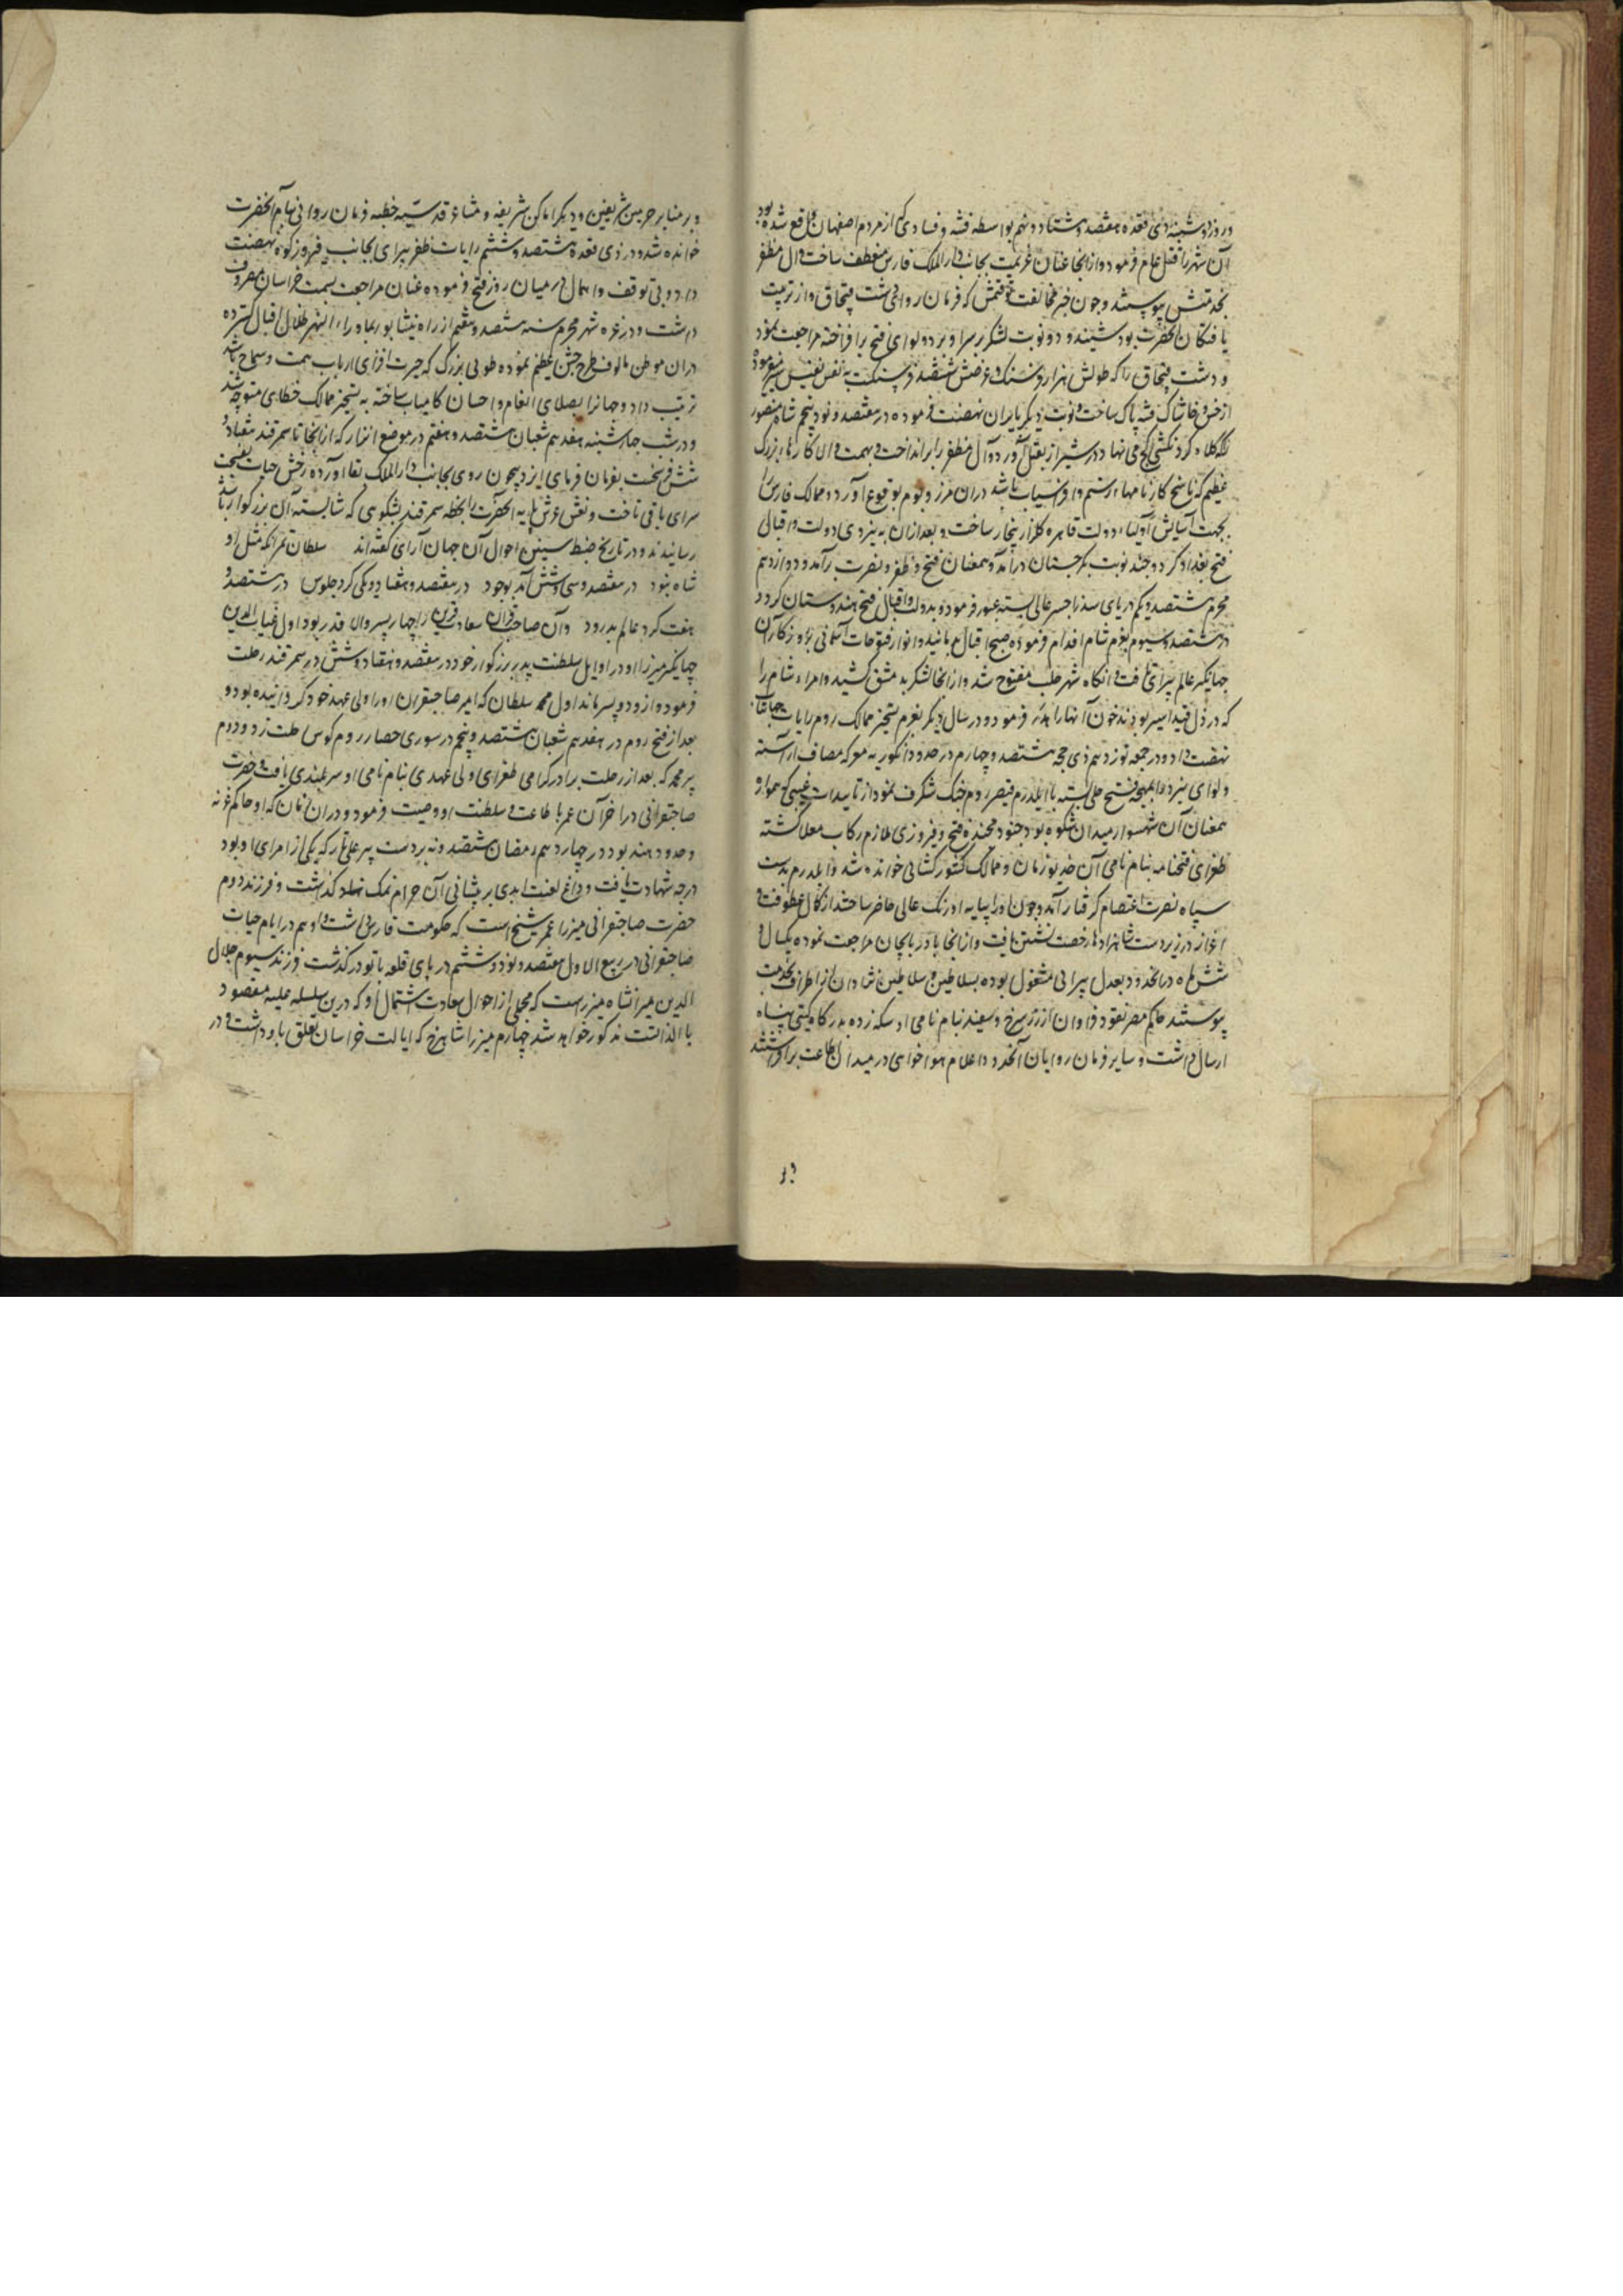 در روز دوشنبه ذی قعده هفتصد و هشتاد و نهم بواسطه فتنه و فسادی که از مردم اصفهان واقع شده بود
آن شهر را قتل عام فرمود و از آنجا عنان عزیمت بجانب دار الملک فارس منعطف ساخت و آل مظفر
بخدمتش پیوستند و چون خبر مخالفت توقتمش که فرمان روای دشت قبچاق و از تربیت
یافتگان آنحضرت بود شنیدند و دو نوبت لشکر بر سر او برد و لوای فتح برافراخته مراجعت نمود
و دشت قبچاق را که طولش هزار فرسنگ و عرضش ششصد فرسنگست به نفس نفیس سیر فرموده
از خس و خاشاک فتنه پاک ساخت و نوبت دیگر بایران نهضت فرموده در هفتصد و نود و پنجم شاه منصور
که کلاه گردنکشی کج می نهاد در شیراز بقتل آورد و آل مظفر را برانداخت و بهمت والا کارهاء بزرگ
عظیم که ناسخ کارنامهاء رستم و افراسیاب باشد دران مرز و بوم بوقوع آورد و ممالک فارس را
بجهت آسایش اولیاء دولت قاهره گلزار بیخار ساخت و بعد ازان به نیروی دولت و اقبال
فتح بغداد کرد و چند نوبت بگرجستان درآمد و همعنان فتح و ظفر و نصرت برآمد و دوازدهم
محرم هشتصد و یکم دریای سند را جسر عالی بسته عبور فرمود و بدولت و اقبال فتح هندوستان کرد و
در هشتصد و سیوم بعزم شام اقدام فرموده صبح اقبال دمانید و انوار فتوحات آسمانی بروزگار آن
جهانگیر عالم پیرای تافت و آنگاه شهر حلب مفتوح شد و از آنجا لشکر بدمشق کشید و امراء شام را
که در ذل قید اسیر بودند خون آنها را هدر فرمود و در سال دیگر بعزم تسخیر ممالک روم رایات جهانتاب
نهضت داد و در جمعه نوزدهم ذی حجه هشتصد و چهارم در حدود انگوریه معرکه مصاف آراسته
و لوای نبرد را بمهجه فتح جلی بسته با ایلدرم قیصر روم جنگ شگرف نمود از تاییدات غیبی که همواره
همعنان آن شهسوار میدان شکوه بود جنود مجنده فتح و فیروزی ملازم رکاب معلا گشته
طغرای فتحنامه بنام نامی آن خدیو زمان و ممالک کشورگشائی خوانده شد و ایلدرم بدست
سپاه نصرت اعتصام گرفتار آمد و چون او را بپایه اورنگ عالی حاضر ساختند از کمال عطوفت و
اعزاز در زیر دست شاهزادها رخصت نشستن یافت و از آنجا باذربایجان مراجعت نموده یکسال و
شش ماه درانحدود بعدل پیرائی مشغول بوده سلاطین و سلاطین نشادان از اطراف بخدمت
پیوستند حاکم مصر نقود فراوان از زر سرخ و سفید بنام نامی او سکه زده بدرگاه گیتی پناه
ارسال داشت و سایر فرمان روایان آنحدود اعلام هواخواهی در میدان اطاعت برافراشتند
و بر
و بر منابر حرمین شریفین و دیگر اماکن شریفه و مشاعر قدسیه خطبه فرمان روائی بنام آنحضرت
خوانده شد و در ذی قعده هشتصد و ششم رایات ظفر پیرای بجانب فیروزکوه نهضت
داد و بی توقف و اهمال در میان روز فتح فرموده عنان مراجعت بسمت خراسان معروف
داشت و در غره شهر محرم سنه هشتصد و هفتم از راه نیشابور بماوراء النهر ظلال اقبال گسترده
دران موطن مالوف طرح جشن عظیم نموده طوئی بزرگ که حیرت افزای ارباب همت و سماح باشد
ترتیب داد و جهانرا بصلای انعام و احسان کامیاب ساخته به تسخیر ممالک خطای متوجه شد
و در شب چهارشنبه هفدهم شعبان هشتصد و هفتم در موضع اترار که از آنجا تا سمرقند هفتاد و
شش فرسخست بفرمان فرمای ایزد بیچون روی بجانب دار الملک بقا آورده رخش حیات بفسحت
سرای باقی تاخت و نعش عرش پایه آنحضرت را بخطه سمرقند بشکوهی که شایسته آن بزرگوار باشد
رسانیدند و در تاریخ ضبط سنین احوال آن جهان آرای گفته اند سلطان تمر آنکه مثل او
شاه نبود در هفتصد و سی و شش آمد بوجود در هفتصد و هفتاد و یکی کرد جلوس در هشتصد و
هفت کرد عالم بدرود و آن صاحب قران سعادت قرین را چهار پسر والا قدر بود اول غیاث الدین
جهانگیر میرزا او در اوایل سلطنت پدر بزرگوار خود در هفتصد و هفتاد و شش در سمرقند رحلت
فرمود و از و دو پسر ماند اول محمد سلطان که امیر صاحبقران او را ولی عهد خود گردانیده بود و
بعد از فتح روم در هفدهم شعبان هشتصد و پنجم در سوری حصار روم کوس رحلت زد و دوم
پیر محمد که بعد از رحلت برادر گرامی طغرای ولی عهدی بنام نامی او سربلندی یافت و حضرت
صاحبقرانی در آخر آن عمر باطاعت و سلطنت او وصیت فرمود و دران زمان که او حاکم غزنه
و حدود هند بود در چهاردهم رمضان هشتصد و نه بر دست پیر علی تاز که یکی از امرای او بود
درجه شهادت یافت و داغ لعنت ابدی بر پیشانی آن حرام نمک نهاد گذاشت و فرزند دوم
حضرت صاحبقرانی میرزا عمر شیخ است که حکومت فارس داشت و او هم در ایام حیات
صاحبقرانی در ربیع الاول هفتصد و نود و ششم در پای قلعه باتو درگذشت فرزند سیوم جلال
الدین میرانشاه میرزاست که مجملی از احوال سعادت اشتمال او که درین سلسله علیه مقصود
بالذاتست مذکور خواهد شد چهارم میرزا شاهرخ که ایالت خراسان تعلق باو داشت و در